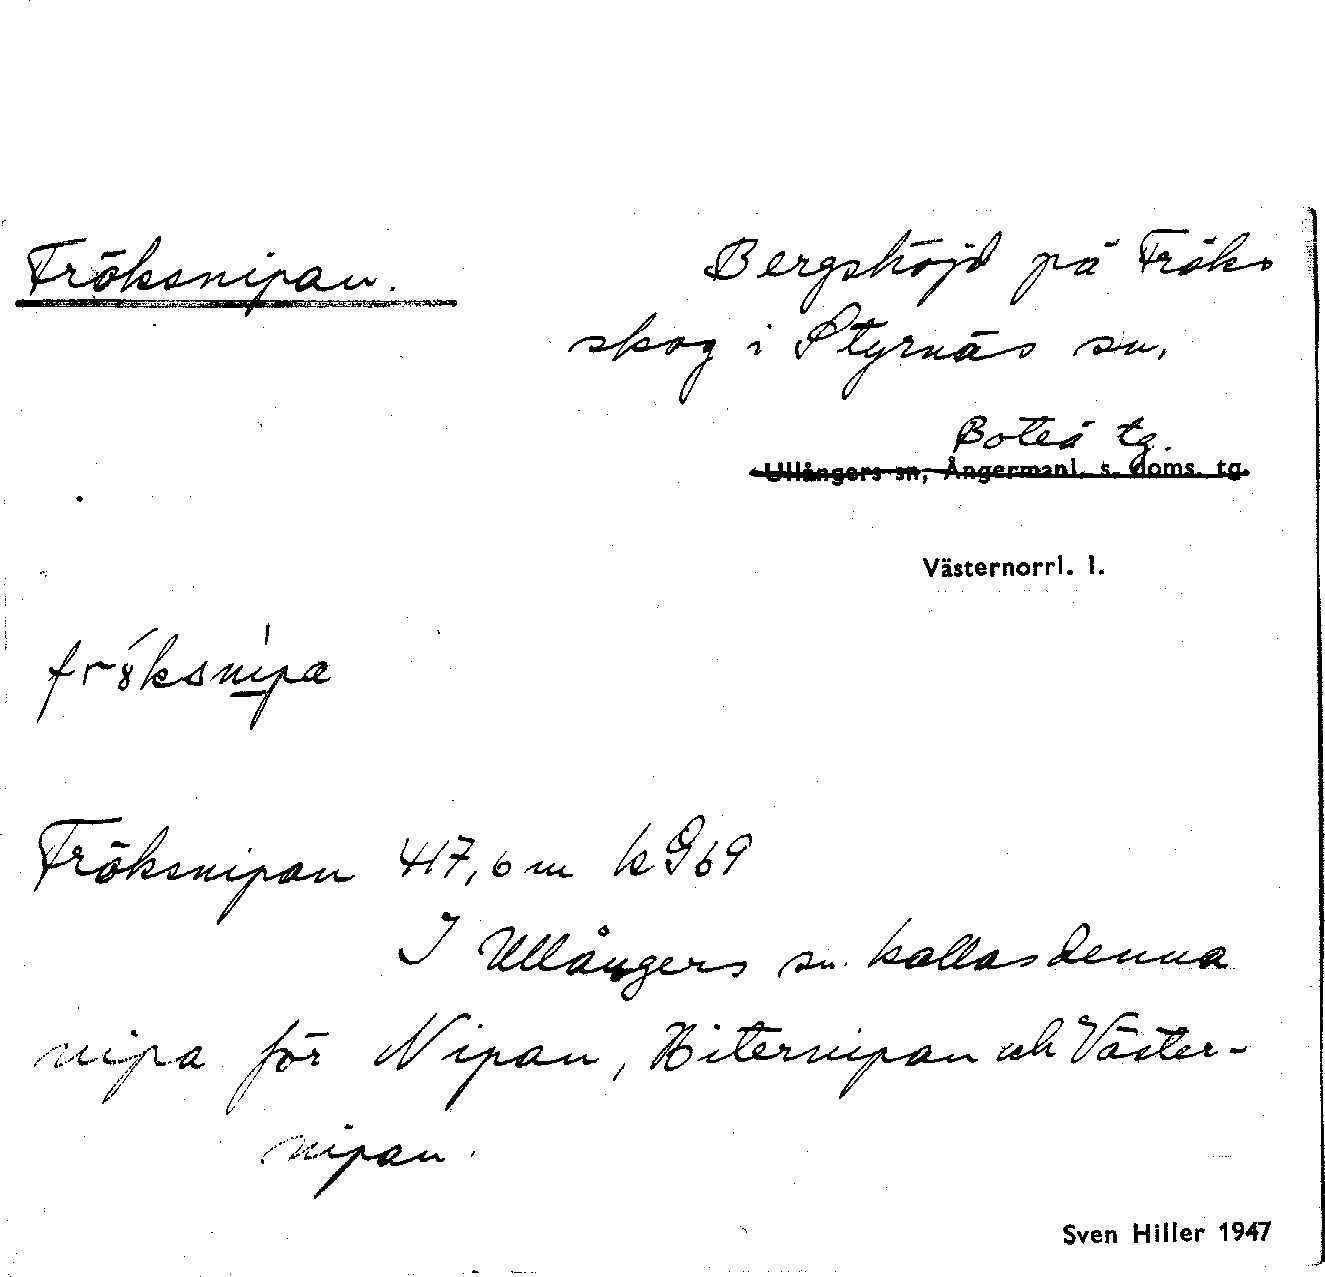 Fröksnipan.
Bergshöjd på Fröks
skog i Styrnäs sn,
Boteå tg.
Ullångers sn, Ångermanl. s. doms. tg.
Västernorrl. l.
Fröksnipan 417,6 m k G 69
I Ullångers sn. kallas denna
nipa för Nipan, Hiternipan och Väster-
nipan.
Sven Hiller 1947